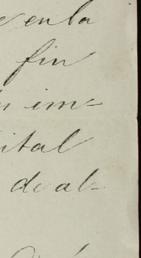 en la
fin
im-
ital
de al-